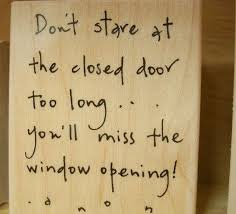 Don't stare at
the closed door
too long . . .
you'll miss the
window opening!
. a n o n